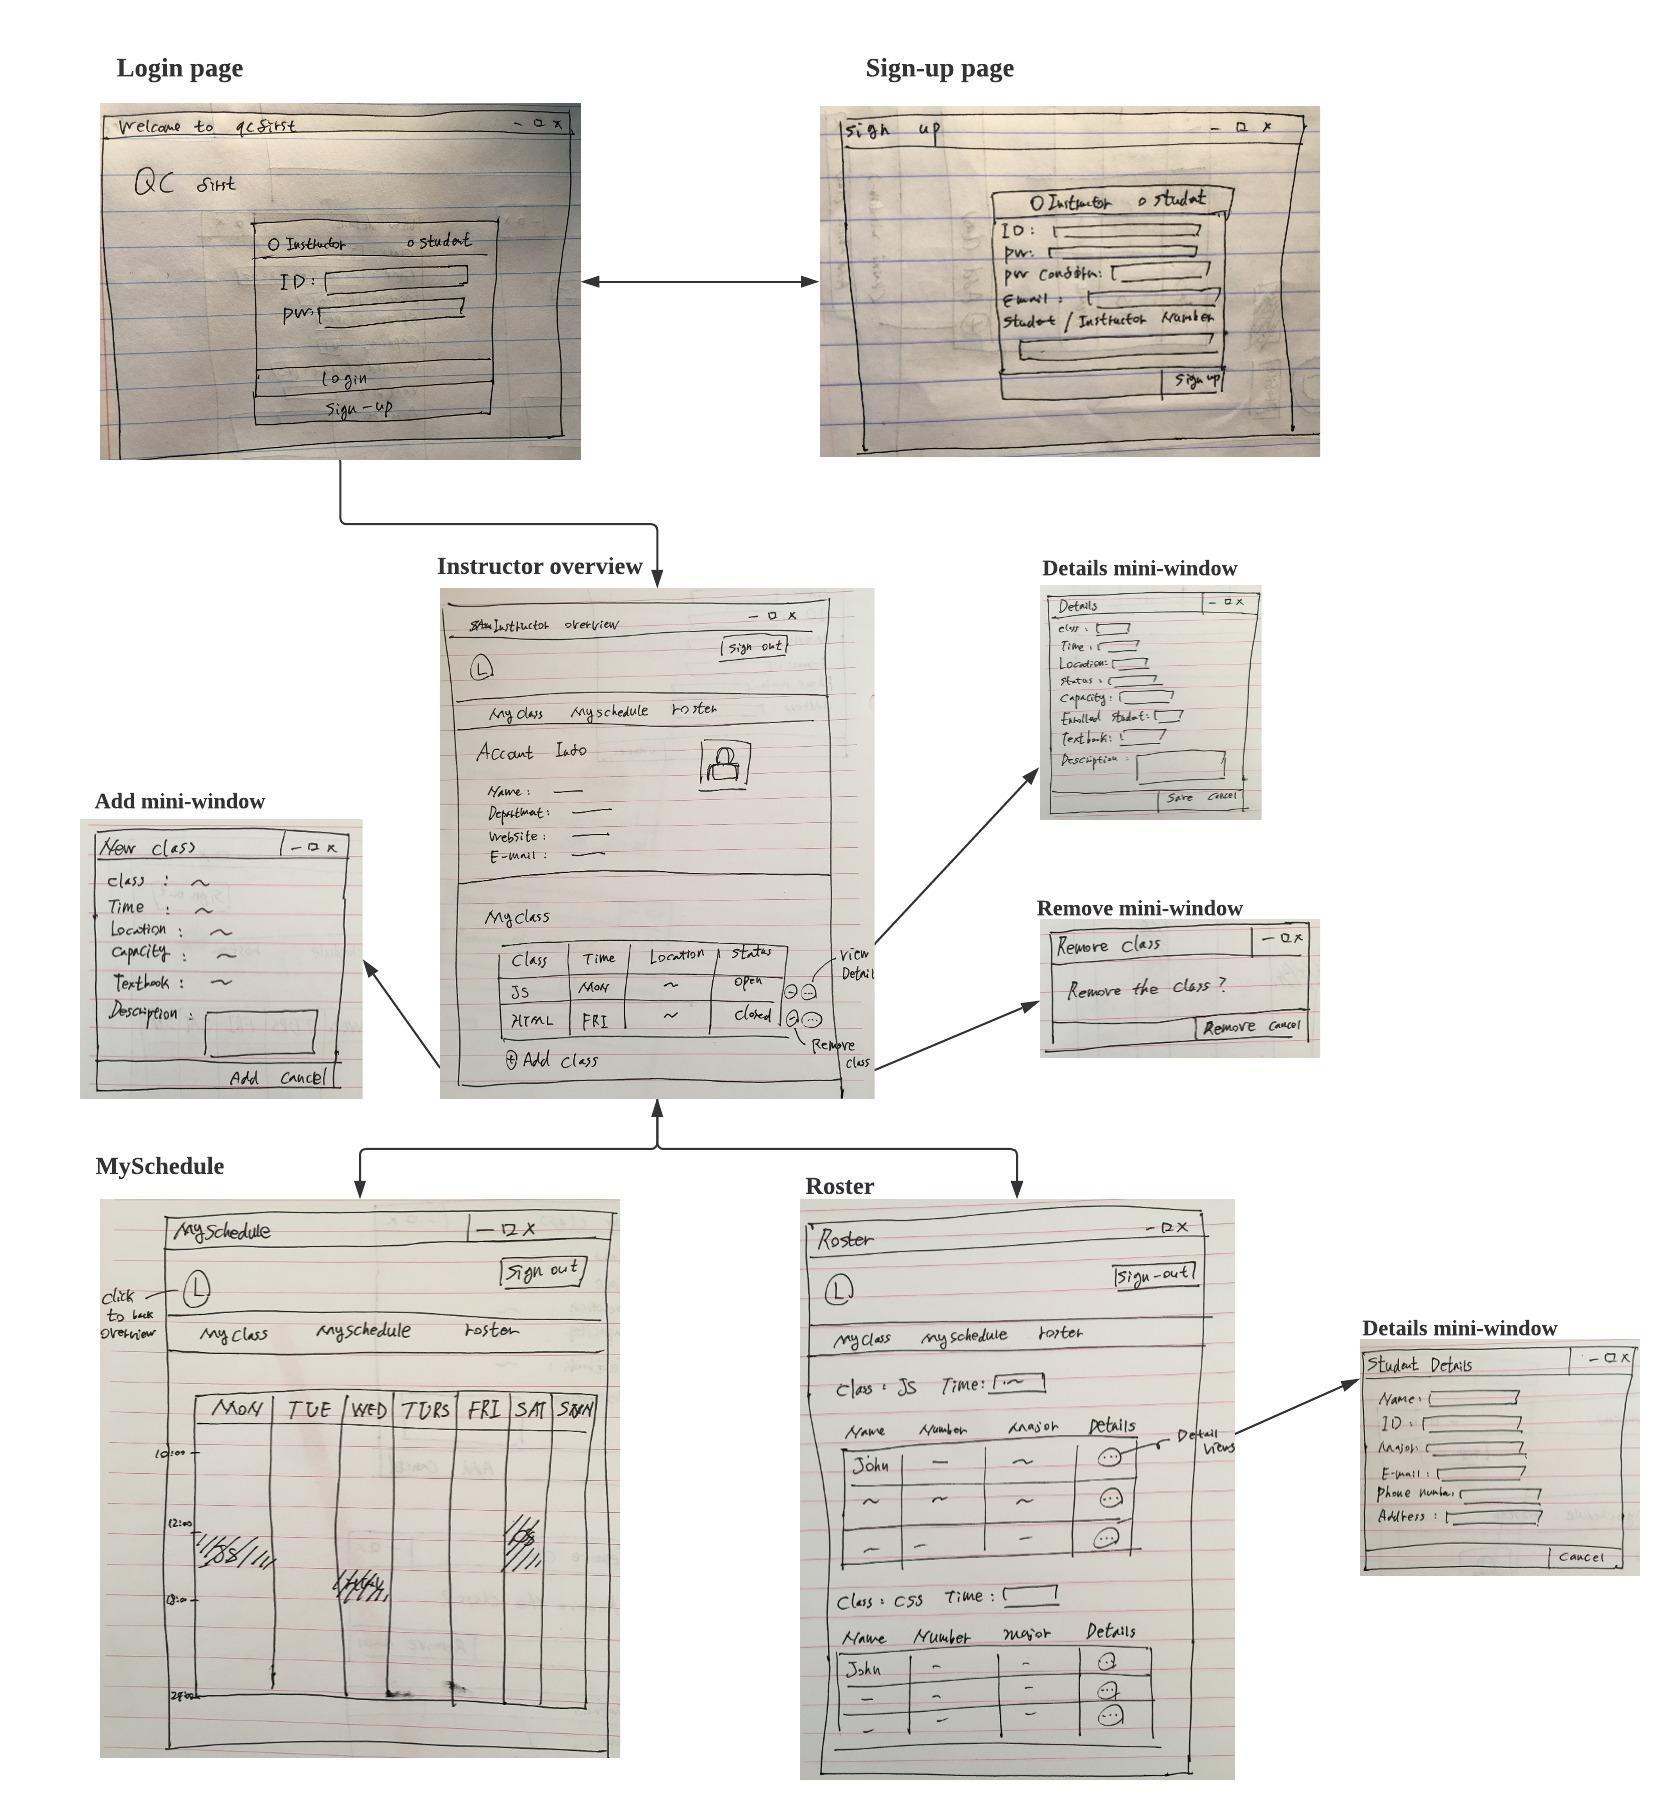 Login page
Welcome to qcfirst
- □ x
QC first
O Instructor o student
ID:
pw:
login
sign-up
Sign-up page
Sign up
- □ x
O Instructor o student
ID:
pw:
pw confirm:
Email:
Student / Instructor Number
Sign up
Instructor overview
Instructor overview
- □ x
Sign out
L
Myclass Myschedule roster
Account Info
Name:
Department:
Website:
E-mail:
Myclass
Class Time Location Status
JS MON ~ open
HTML FRI ~ closed
⊕ Add class
View
Detail
Remove
class
Details mini-window
Details
- □ x
class:
Time:
Location:
Status:
Capacity:
Enrolled student:
Textbook:
Description:
Save Cancel
Add mini-window
New class
- □ x
class: ~
Time: ~
Location: ~
capacity: ~
Textbook: ~
Description:
Add Cancel
Remove mini-window
Remove class
- □ x
Remove the class?
Remove Cancel
MySchedule
MySchedule
- □ x
Sign out
L
click
to back
overview
Myclass Myschedule roster
MON TUE WED TURS FRI SAT SUN
10:00
12:00
JS
JS
18:00
Roster
Roster
- □ x
Sign-out
L
Myclass Myschedule roster
Class: JS Time: ~
Name Number Major Details
John - ~
~ ~ ~
- - -
Detail
views
Class: CSS Time:
Name Number major Details
John - -
- - -
- - -
Details mini-window
Student Details
- □ x
Name:
ID:
Major:
E-mail:
Phone number:
Address:
Cancel